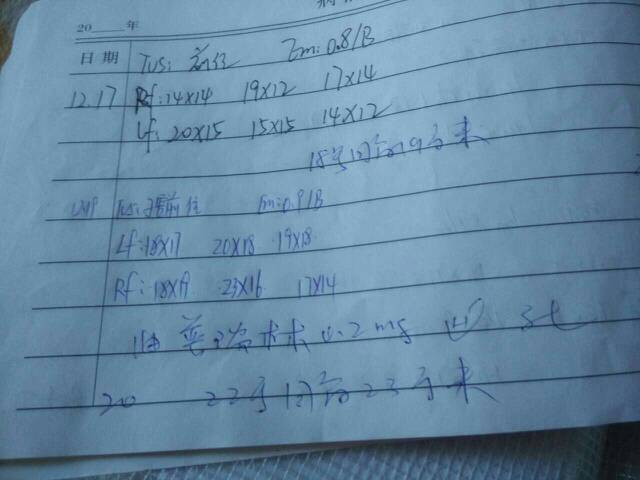 20 年
日期 TVS: 前位 Em: 0.8/B
12.17 Rf: 14X14 19X12 17X14
Lf: 20X15 15X15 14X12
18号 同房 19号来
TVS: 前位 Em: 0.9/B
Lf: 18X17 20X18 19X18
Rf: 18X19 23X16 17X14
0.2mg
20 22号同房23号来